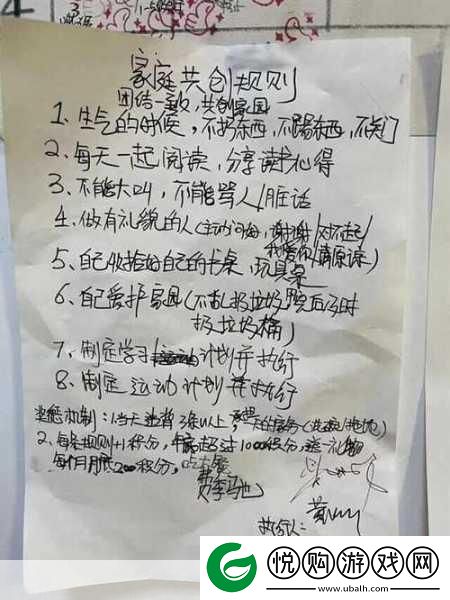 家庭共创规则
团结一致，共创家园
1、生气的时候，不扔东西，不踢东西，不关门
2、每天一起阅读，分享读书心得
3、不能大叫，不能骂人/脏话
4、做有礼貌的人（主动问好，谢谢/对不起/
我爱你/请原谅）
5、自己收拾好自己的书桌，玩具桌
6、自己爱护家园（不乱扔垃圾
扔垃圾桶）
7、制定学习计划并执行
8、制定运动计划并执行
奖惩机制：1、当天违背3条以上，
2、每条规则+1积分，年底超过1000积分，送一礼物
每个月月底200积分，吃大餐
执行人：
悦购游戏网
www.ubalh.com